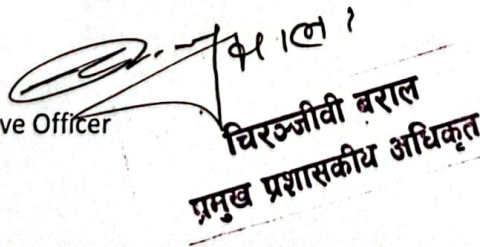 ve Officer
चिरञ्जीवी बराल
प्रमुख प्रशासकीय अधिकृत